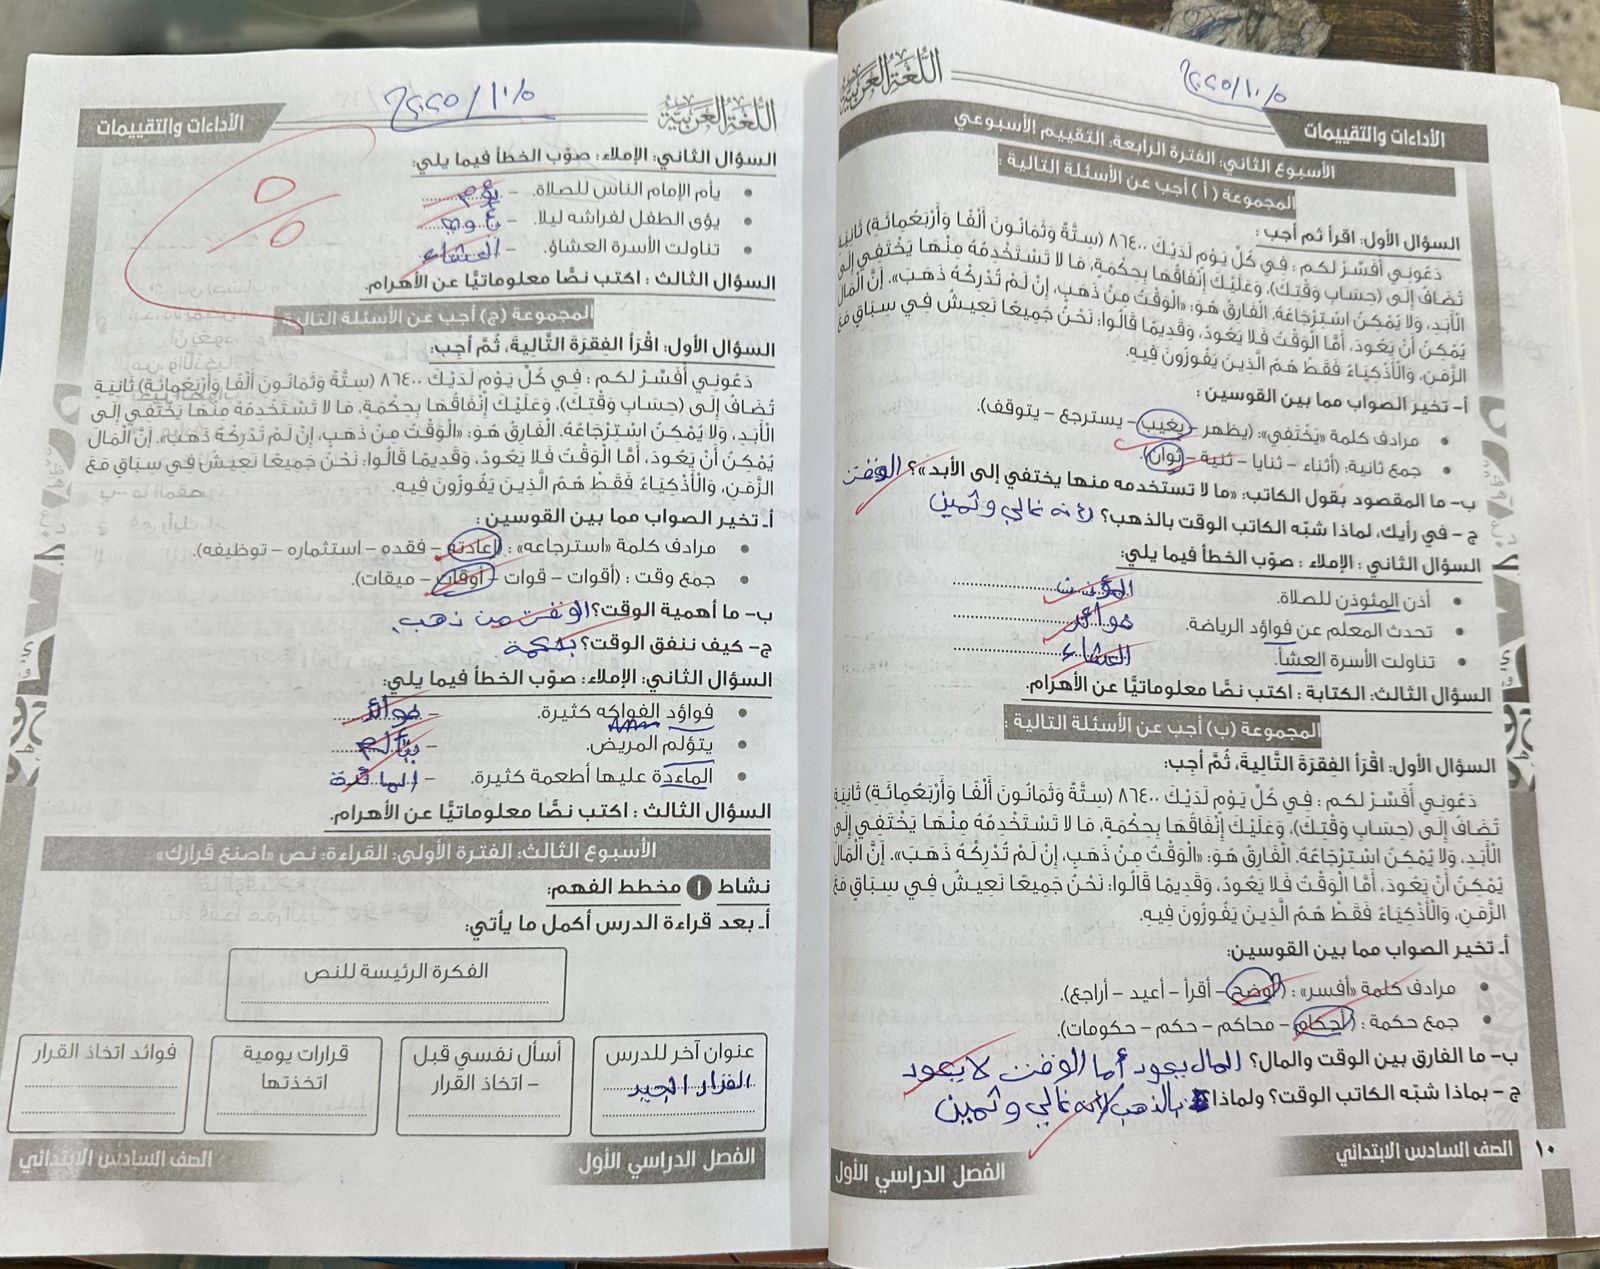 اللغة العربية
٢٠٢٥/١٠/٥
الأداءات والتقييمات
الأسبوع الثاني: الفترة الرابعة، التقييم الأسبوعي
المجموعة (أ) أجب عن الأسئلة التالية:
السؤال الأول: اقرأ ثم أجب:
دَعُونِي أُفَسِّرْ لكم: فِي كُلِّ يَوْمٍ لَدَيْكَ ٨٦٤٠٠ (سِتَّةٌ وَثَمَانُونَ أَلْفًا وَأَرْبَعُمِائَةِ) ثَانِيَةٍ
تُضَافُ إِلَى (حِسَابِ وَقْتِكَ)، وَعَلَيْكَ إِنْفَاقُهَا بِحِكْمَةٍ، مَا لَا تَسْتَخْدِمُهُ مِنْهَا يَخْتَفِي إِلَى
الْأَبَدِ، وَلَا يُمْكِنُ اسْتِرْجَاعُهُ. الْفَارِقُ هُوَ: «الْوَقْتُ مِنْ ذَهَبٍ، إِنْ لَمْ تُدْرِكْهُ ذَهَبَ». إِنَّ الْمَالَ
يُمْكِنُ أَنْ يَعُودَ، أَمَّا الْوَقْتُ فَلَا يَعُودُ، وَقَدِيمًا قَالُوا: نَحْنُ جَمِيعًا نَعِيشُ فِي سِبَاقٍ مَعَ
الزَّمَنِ، وَالْأَذْكِيَاءُ فَقَطْ هُمُ الَّذِينَ يَفُوزُونَ فِيهِ.
أ- تخير الصواب مما بين القوسين:
• مرادف كلمة «يَخْتَفِي»: (يظهر – يغيب – يسترجع – يتوقف).
• جمع ثانية: (أثناء – ثنايا – ثنية – ثوان).
ب- ما المقصود بقول الكاتب: «ما لا تستخدمه منها يختفي إلى الأبد»؟ الوقت
ج - في رأيك، لماذا شبّه الكاتب الوقت بالذهب؟ لأنه غالي وثمين
السؤال الثاني: الإملاء: صوّب الخطأ فيما يلي:
• أذن المئوذن للصلاة. المؤذن
• تحدث المعلم عن فواؤد الرياضة. فوائد
• تناولت الأسرة العشأ. العشاء
السؤال الثالث: الكتابة: اكتب نصًّا معلوماتيًّا عن الأهرام.
المجموعة (ب) أجب عن الأسئلة التالية:
السؤال الأول: اقْرَأِ الفِقرَةَ التَّالِيةَ، ثُمَّ أَجِب:
دَعُونِي أُفَسِّرْ لكم: فِي كُلِّ يَوْمٍ لَدَيْكَ ٨٦٤٠٠ (سِتَّةٌ وَثَمَانُونَ أَلْفًا وَأَرْبَعُمِائَةِ) ثَانِيَةٍ
تُضَافُ إِلَى (حِسَابِ وَقْتِكَ)، وَعَلَيْكَ إِنْفَاقُهَا بِحِكْمَةٍ، مَا لَا تَسْتَخْدِمُهُ مِنْهَا يَخْتَفِي إِلَى
الْأَبَدِ، وَلَا يُمْكِنُ اسْتِرْجَاعُهُ. الْفَارِقُ هُوَ: «الْوَقْتُ مِنْ ذَهَبٍ، إِنْ لَمْ تُدْرِكْهُ ذَهَبَ». إِنَّ الْمَالَ
يُمْكِنُ أَنْ يَعُودَ، أَمَّا الْوَقْتُ فَلَا يَعُودُ، وَقَدِيمًا قَالُوا: نَحْنُ جَمِيعًا نَعِيشُ فِي سِبَاقٍ مَعَ
الزَّمَنِ، وَالْأَذْكِيَاءُ فَقَطْ هُمُ الَّذِينَ يَفُوزُونَ فِيهِ.
أ- تخير الصواب مما بين القوسين:
• مرادف كلمة «أفسر»: (أوضح – أقرأ – أعيد – أراجع).
• جمع حكمة: (أحكام – محاكم – حكم – حكومات).
ب- ما الفارق بين الوقت والمال؟ المال يعود أما الوقت لا يعود
ج - بماذا شبّه الكاتب الوقت؟ ولماذا؟ بالذهب لأنه غالي وثمين
١٠
الصف السادس الابتدائي
الفصل الدراسي الأول
اللغة العربية
٢٠٢٥/١٠/٥
الأداءات والتقييمات
السؤال الثاني: الإملاء: صوّب الخطأ فيما يلي:
• يأم الإمام الناس للصلاة. – يؤم
• يؤى الطفل لفراشه ليلا. –
• تناولت الأسرة العشاؤ. – العشاء
٥/٥
السؤال الثالث: اكتب نصًّا معلوماتيًّا عن الأهرام.
المجموعة (ج) أجب عن الأسئلة التالية:
السؤال الأول: اقْرَأِ الفِقرَةَ التَّالِيةَ، ثُمَّ أَجِب:
دَعُونِي أُفَسِّرْ لكم: فِي كُلِّ يَوْمٍ لَدَيْكَ ٨٦٤٠٠ (سِتَّةٌ وَثَمَانُونَ أَلْفًا وَأَرْبَعُمِائَةِ) ثَانِيَةٍ
تُضَافُ إِلَى (حِسَابِ وَقْتِكَ)، وَعَلَيْكَ إِنْفَاقُهَا بِحِكْمَةٍ، مَا لَا تَسْتَخْدِمُهُ مِنْهَا يَخْتَفِي إِلَى
الْأَبَدِ، وَلَا يُمْكِنُ اسْتِرْجَاعُهُ. الْفَارِقُ هُوَ: «الْوَقْتُ مِنْ ذَهَبٍ، إِنْ لَمْ تُدْرِكْهُ ذَهَبَ». إِنَّ الْمَالَ
يُمْكِنُ أَنْ يَعُودَ، أَمَّا الْوَقْتُ فَلَا يَعُودُ، وَقَدِيمًا قَالُوا: نَحْنُ جَمِيعًا نَعِيشُ فِي سِبَاقٍ مَعَ
الزَّمَنِ، وَالْأَذْكِيَاءُ فَقَطْ هُمُ الَّذِينَ يَفُوزُونَ فِيهِ.
أ- تخير الصواب مما بين القوسين:
• مرادف كلمة «استرجاعه»: (إعادته – فقده – استثماره – توظيفه).
• جمع وقت: (أقوات – قوات – أوقات – ميقات).
ب- ما أهمية الوقت؟ الوقت من ذهب
ج- كيف ننفق الوقت؟ بحكمة
السؤال الثاني: الإملاء: صوّب الخطأ فيما يلي:
• فواؤد الفواكه كثيرة. – فوائد
• يتؤلم المريض. – يتألم
• الماءدة عليها أطعمة كثيرة. – المائدة
السؤال الثالث: اكتب نصًّا معلوماتيًّا عن الأهرام.
الأسبوع الثالث: الفترة الأولى: القراءة: نص «اصنع قرارك»
نشاط ١ مخطط الفهم:
أ- بعد قراءة الدرس أكمل ما يأتي:
الفكرة الرئيسة للنص
عنوان آخر للدرس
القرار الجيد
أسأل نفسي قبل
اتخاذ القرار –
قرارات يومية
اتخذتها
فوائد اتخاذ القرار
الفصل الدراسي الأول
الصف السادس الابتدائي